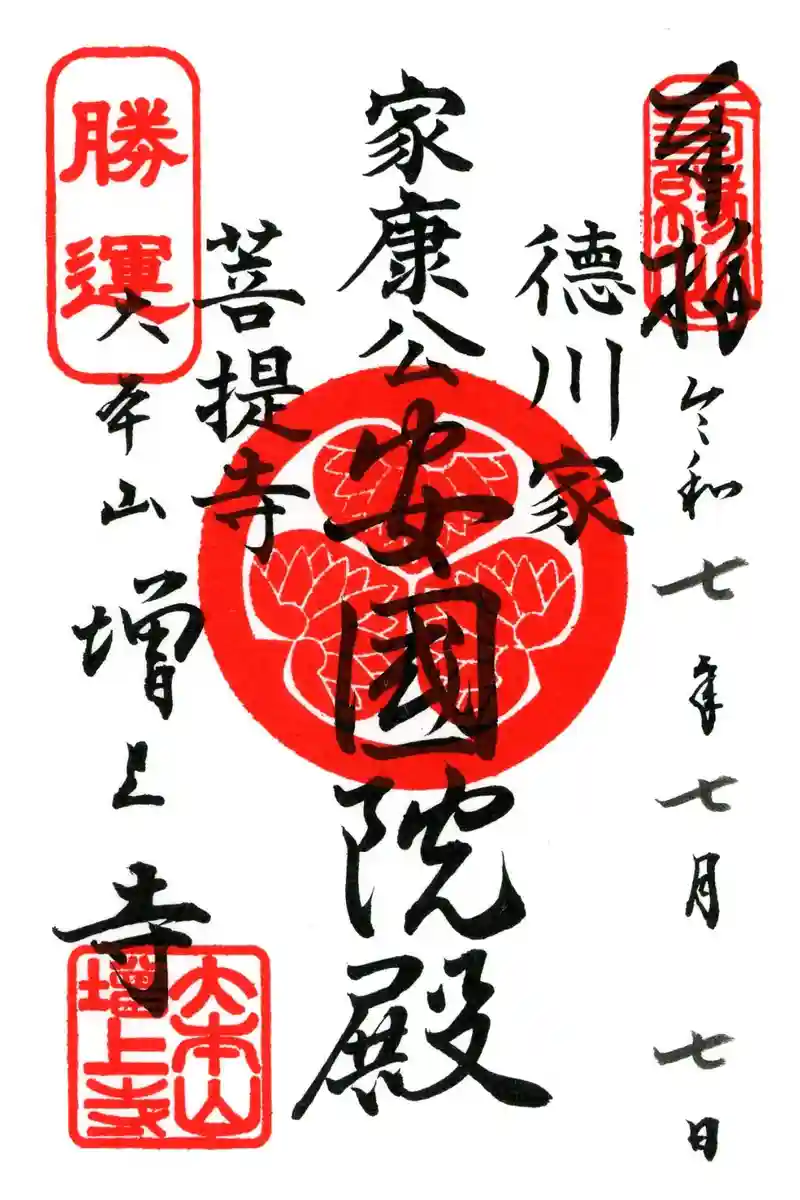 奉拝
令和七年七月七日
徳川家
家康公
安國院殿
菩提寺
勝運
大本山増上寺
大本山
増上寺